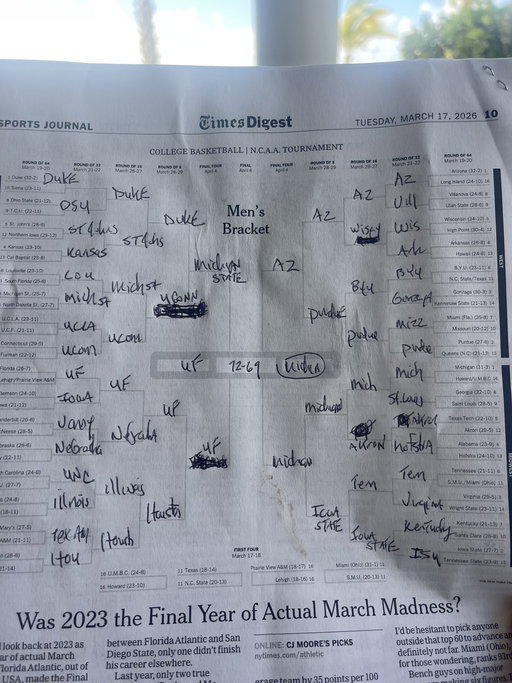 SPORTS JOURNAL
TimesDigest
TUESDAY, MARCH 17, 2026 10
COLLEGE BASKETBALL | N.C.A.A. TOURNAMENT
ROUND OF 64
March 19-20
ROUND OF 32
March 21-22
ROUND OF 16
March 26-27
ROUND OF 8
March 28-29
FINAL FOUR
April 4
FINAL
April 6
FINAL FOUR
April 4
ROUND OF 8
March 28-29
ROUND OF 16
March 26-27
ROUND OF 32
March 21-22
ROUND OF 64
March 19-20
Men's
Bracket
1 Duke (32-2)
16 Siena (23-11)
8 Ohio State (21-12)
9 T.C.U. (22-11)
5 St. John's (28-6)
12 Northern Iowa (23-12)
4 Kansas (23-10)
13 Cal Baptist (25-8)
6 Louisville (23-10)
11 South Florida (25-8)
3 Michigan St. (25-7)
14 North Dakota St. (27-7)
U.C.L.A. (23-11)
U.C.F. (21-11)
Connecticut (29-5)
Furman (22-12)
Florida (26-7)
Lehigh/Prairie View A&M
Clemson (24-10)
Iowa (21-12)
Vanderbilt (26-8)
McNeese (28-5)
Nebraska (26-6)
(22-11)
North Carolina (24-8)
(27-7)
Illinois (24-8)
(18-11)
Mary's (27-5)
A&M (21-11)
(28-6)
(21-14)
DUKE
OSU
ST Johns
Kansas
Lou
Mich St
UCLA
UConn
UF
Iowa
Vandy
Nebraska
UNC
Illinois
Tex AM
Hou
DUKE
ST Johns
Mich St
UConn
UF
Nebraska
Illinois
Houston
DUKE
UCONN
UF
Houston
Michigan
STATE
UF
UF
72-69
Michigan
AZ
Michigan
AZ
Purdue
Michigan
IOWA
STATE
AZ
Wisky
BYU
Purdue
Mich
AKRON
Tenn
Iowa
STATE
AZ
Vill
Wis
Ark
BYU
Gonzaga
Mizz
Purdue
Mich
St. Louis
Akron
Hofstra
Tenn
Virginia
Kentucky
ISU
Arizona (32-2) 1
Long Island (24-10) 16
Villanova (24-8) 8
Utah State (28-6) 9
Wisconsin (24-10) 5
High Point (30-4) 12
Arkansas (26-8) 4
Hawaii (24-8) 13
B.Y.U. (23-11) 6
N.C. State/Texas 11
Gonzaga (30-3) 3
Kennesaw State (21-13) 14
Miami (Fla.) (25-8) 7
Missouri (20-12) 10
Purdue (27-8) 2
Queens (N.C.) (21-13) 15
WEST
Michigan (31-3) 1
Howard/U.M.B.C. 16
Georgia (22-10) 8
Saint Louis (28-5) 9
Texas Tech (22-10) 5
Akron (29-5) 12
Alabama (23-9) 4
Hofstra (24-10) 13
Tennessee (21-11) 6
S.M.U./Miami (Ohio) 11
Virginia (29-5) 3
Wright State (23-11) 14
Kentucky (21-13) 7
Santa Clara (26-8) 10
Iowa State (27-7) 2
Tennessee State (23-9) 15
FIRST FOUR
March 17-18
16 U.M.B.C. (24-8)
16 Howard (23-10)
11 Texas (18-14)
11 N.C. State (20-13)
Prairie View A&M (18-17) 16
Lehigh (18-16) 16
Miami (Ohio) (31-1) 11
S.M.U. (20-13) 11
Was 2023 the Final Year of Actual March Madness?
look back at 2023 as
ar of actual March
Florida Atlantic, out of
USA, made the Final
between Florida Atlantic and San
Diego State, only one didn't finish
his career elsewhere.
Last year, only two true
ONLINE: CJ MOORE'S PICKS
nytimes.com/athletic
erage team by 35 points per 100
I'd be hesitant to pick anyone
outside that top 60 to advance an
definitely not far. Miami (Ohio),
for those wondering, ranks 93rd
Bench guys on high-major